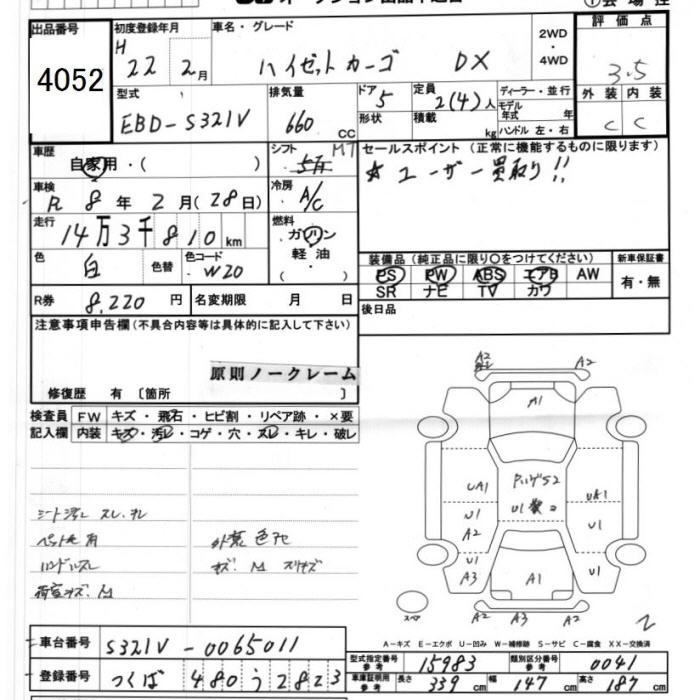 出品番号 4052
初度登録年月 H 22 2月
車名・グレード ハイゼットカーゴ DX
2WD・4WD
評価点 3.5
外装 内装
C C
型式 EBD-S321V
排気量 660 CC
ドア 5 形状
定員 2(4)人 積載 kg
ディーラー・並行
モデル年式 年
ハンドル 左・右
車歴 自家用・( )
シフト 5 MT
セールスポイント (正常に機能するものに限ります)
☆ ユーザー買取り!!
車検 R 8年 2月(28日)
冷房 A/C
走行 14万3千810km
燃料 ガソリン 軽油 ( )
色 白 色替 色コード W20
装備品 (純正品に限り○をつけてください)
新車保証書
PS PW ABS エアB AW
有・無
SR ナビ TV カワ
R券 8,220円
名変期限 月 日
後日品
注意事項申告欄(不具合内容等は具体的に記入して下さい)
原則ノークレーム
修復歴 有 〔箇所 〕
検査員記入欄
FW キズ・飛石・ヒビ割・リペア跡・×要
内装 キズ・汚レ・コゲ・穴・スレ・キレ・破レ
シート汚レ スレ
ハンドルスレ
外装 色
荷室キズ
A2 A2
A1
UA1
U1
A2
U1
A3
U1
U1
A1
A2 A3 A2
スペア
2
A-キズ E-エクボ U-凹み W-補修跡 S-サビ C-腐食 XX-交換済
車台番号 S321V-0065011
登録番号 つくば 480 う 2823
型式指定番号 参考 15983
類別区分番号 参考 0041
車庫証明用 参考 長さ 339cm 幅 147cm 高さ 187cm